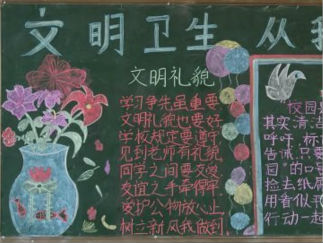 文明卫生 从我
文明礼貌
学习争先虽重要
文明礼貌也要好
学校规定要遵守
见到老师有礼貌
同学之间要友爱
友谊之手牵得牢
爱护公物放心上
树立新风我做到
校园是
其实清洁
呼吁,标
告诫,只要
园"的
捡去纸屑
用着似
行动一起